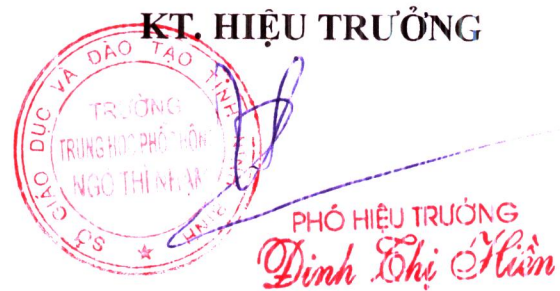 KT. HIỆU TRƯỞNG
SỞ GIÁO DỤC VÀ ĐÀO TẠO TỈNH NINH BÌNH
TRƯỜNG
TRUNG HỌC PHỔ THÔNG
NGÔ THÌ NHẬM
PHÓ HIỆU TRƯỞNG
Đinh Thị Hiền